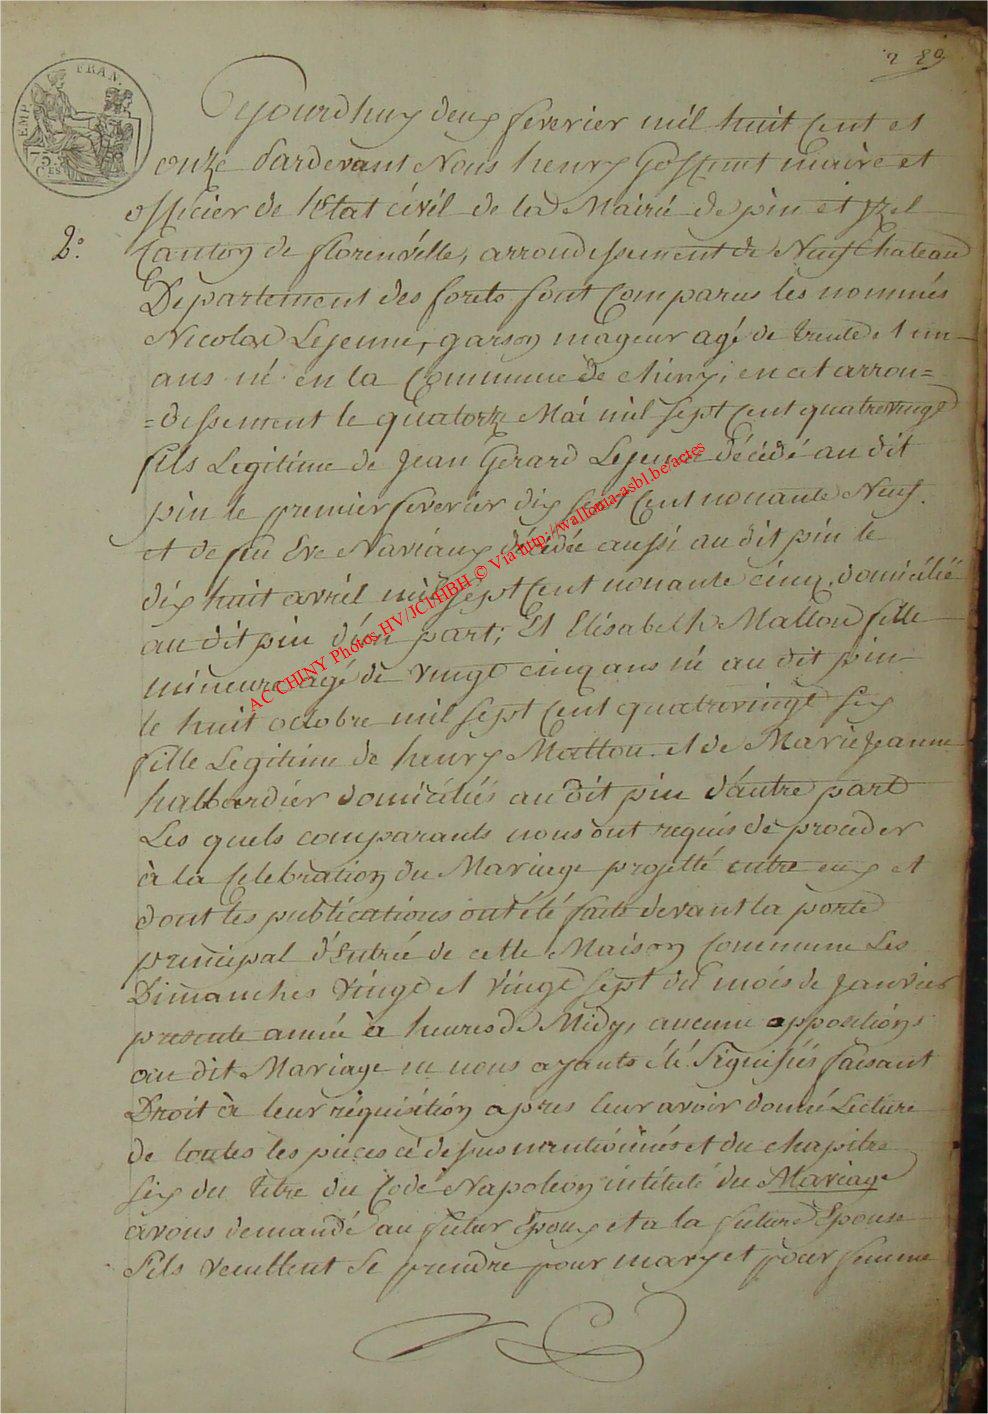 2 89
EMP. FRAN.
75
CES
2°.
Cejourdhuy deux feverier mil huit Cent et
onze Pardevant Nous henry maire et
officier de l'Etat civil de la Mairie de pin et yzel
Canton de florenville, arrondissement de Neufchateau
Departement des forets sont Comparus les nommés
Nicolas Lejeune, garson mageur agé de trente et un
ans né en la Commune de chiny, en cet arron=
=dissement le quatorze Mai mil sept Cent quatrevingt
fils Legitime de Jean Gerard Lejeune décédé au dit
pin le premier feverier dix sept Cent nonante Neuf.
et de feu Eve Naviaux décédée aussi au dit pin le
dix huit avril mil sept Cent nonante cinq, domicilié
au dit pin d'une part; Et Elisabeth Mallou fille
mineure agé de vingt cinq ans né au dit pin
le huit octobre mil sept Cent quatrevingt six
fille Legitime de henry Mattou et de Marie Jeanne
halbardier domiciliés au dit pin d'autre part
Les quels comparants nous ont requis de proceder
à la Celebration du Mariage projetté entre eux et
dont les publications ont été faite devant la porte
principal d'Entrée de cette Maison Commune Les
Dimanches vingt et vingt sept du mois de Janvier
presente année à heures de Midy, aucune oppositions
au dit Mariage ne nous ayants été Signifiés faisant
Droit à leur réquisition apres leur avoir donné Lecture
de toutes les pieces cidessus mentionnés et du chapitre
six du titre du Code Napoleon intitulé du Mariage
avons demandé au futur Epoux et a la future Epouse
sils veullent Se prendre pour mary et pour femme
AC CHINY Photos HV/JCl/HBH © Via http://wallonia-asbl.be/actes